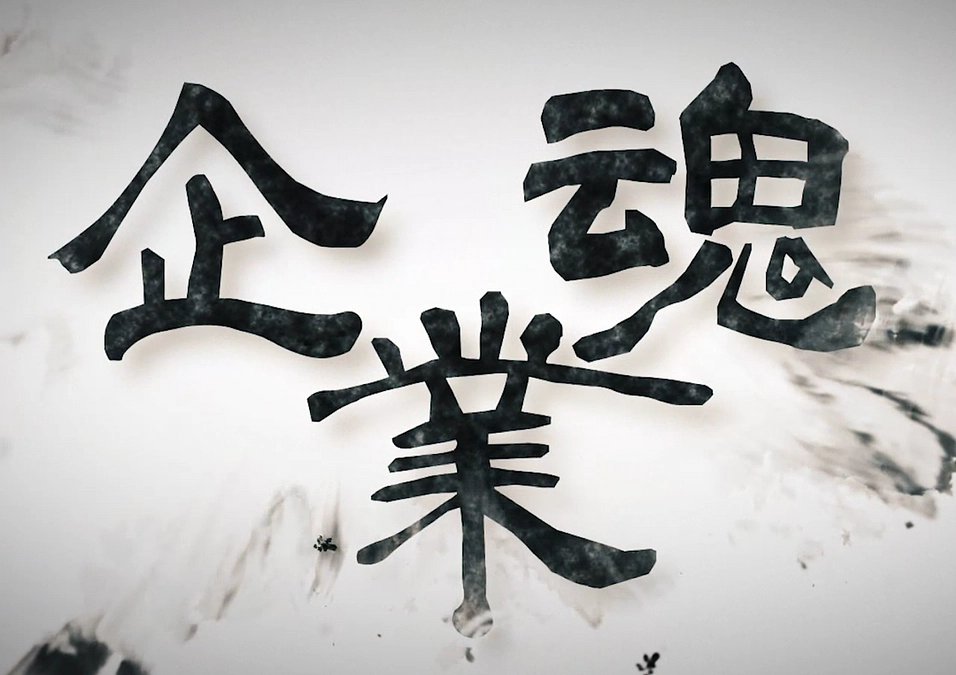 企業魂